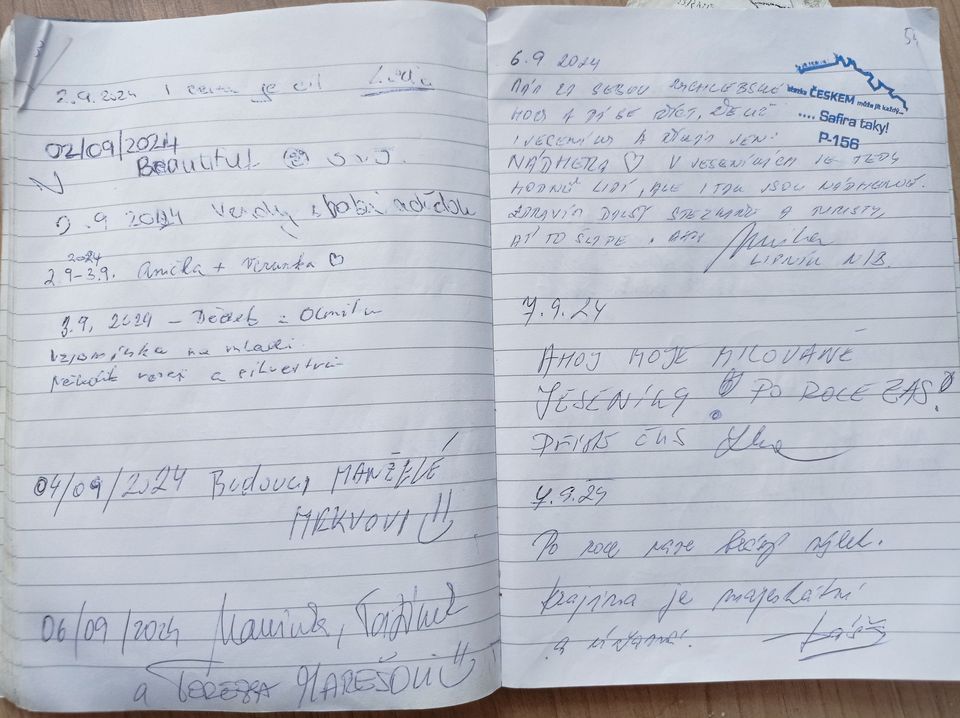 2.9.2024 I cesta je cíl
02/09/2024
Beautiful
2.9 2024
2024
2.9-3.9. Anička + Verunka ♡
3.9. 2024 - Dědek z Olomouce
vzpomínka na mládí.
a silvestra
04/09/2024 Budoucí MANŽELÉ
MRKVOVI
06/09/2024 Maminka, Taťínek
a TEREZKA MAREŠOVI
54
6.9 2024
MÁM ZA SEBOU RYCHLEBSKÉ
HORY A DÁ SE ŘÍCT, ŽE UŽ
I JESENÍKY A ŘÍKÁM JEN:
NÁDHERA ♡ V JESENÍCÍCH JE TEDY
HODNĚ LIDÍ, ALE I TAK JSOU NÁDHERNÉ.
ZDRAVÍM DALŠÍ STEZKAŘE A TURISTY,
AŤ TO ŠLAPE. AHOJ
LIPNÍK N/B.
ČESKEM může jít každý...
.... Safira taky!
P-156
7.9.24
AHOJ MOJE MILOVANÉ
JESENÍKY PO ROCE ZAS!
PŘÍŠTĚ ČUS
7.9.24
Po roce náš výlet.
krajina je majestátní
a úžasná.